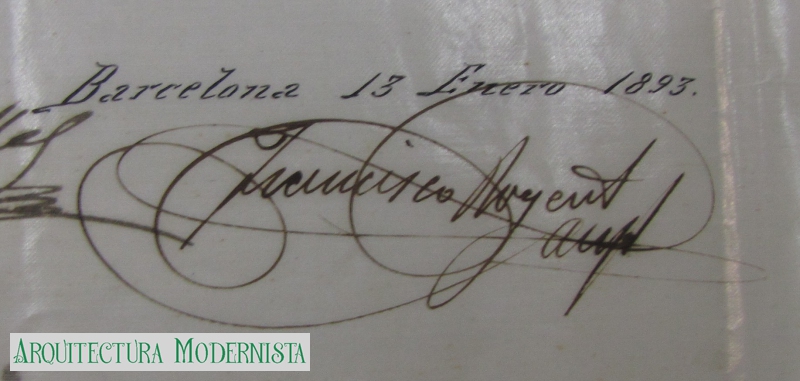 Barcelona 13 Enero 1893.
Francisco Rogent
ARQUITECTURA MODERNISTA